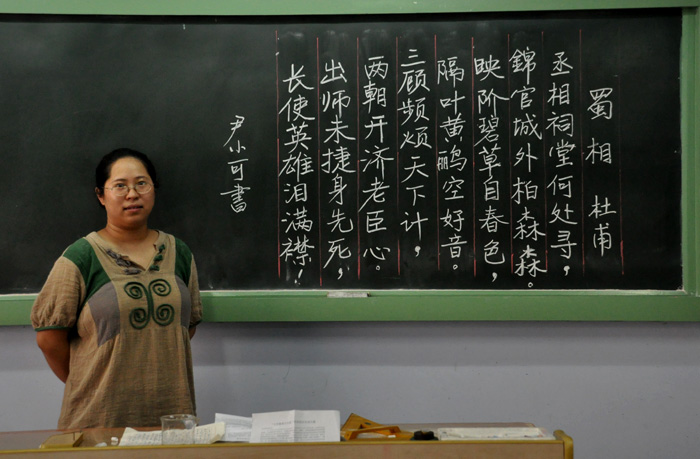 蜀相 杜甫
丞相祠堂何处寻，
錦官城外柏森森。
映阶碧草自春色，
隔叶黄鹂空好音。
三顾频烦天下计，
两朝开济老臣心。
出师未捷身先死，
长使英雄泪满襟！
尹小可書